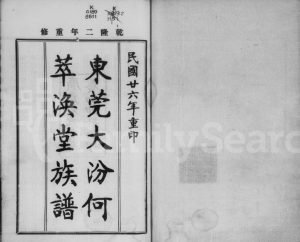 乾隆二年重修
民國廿六年重印
東莞大汾何
萃渙堂族譜
FamilySearch